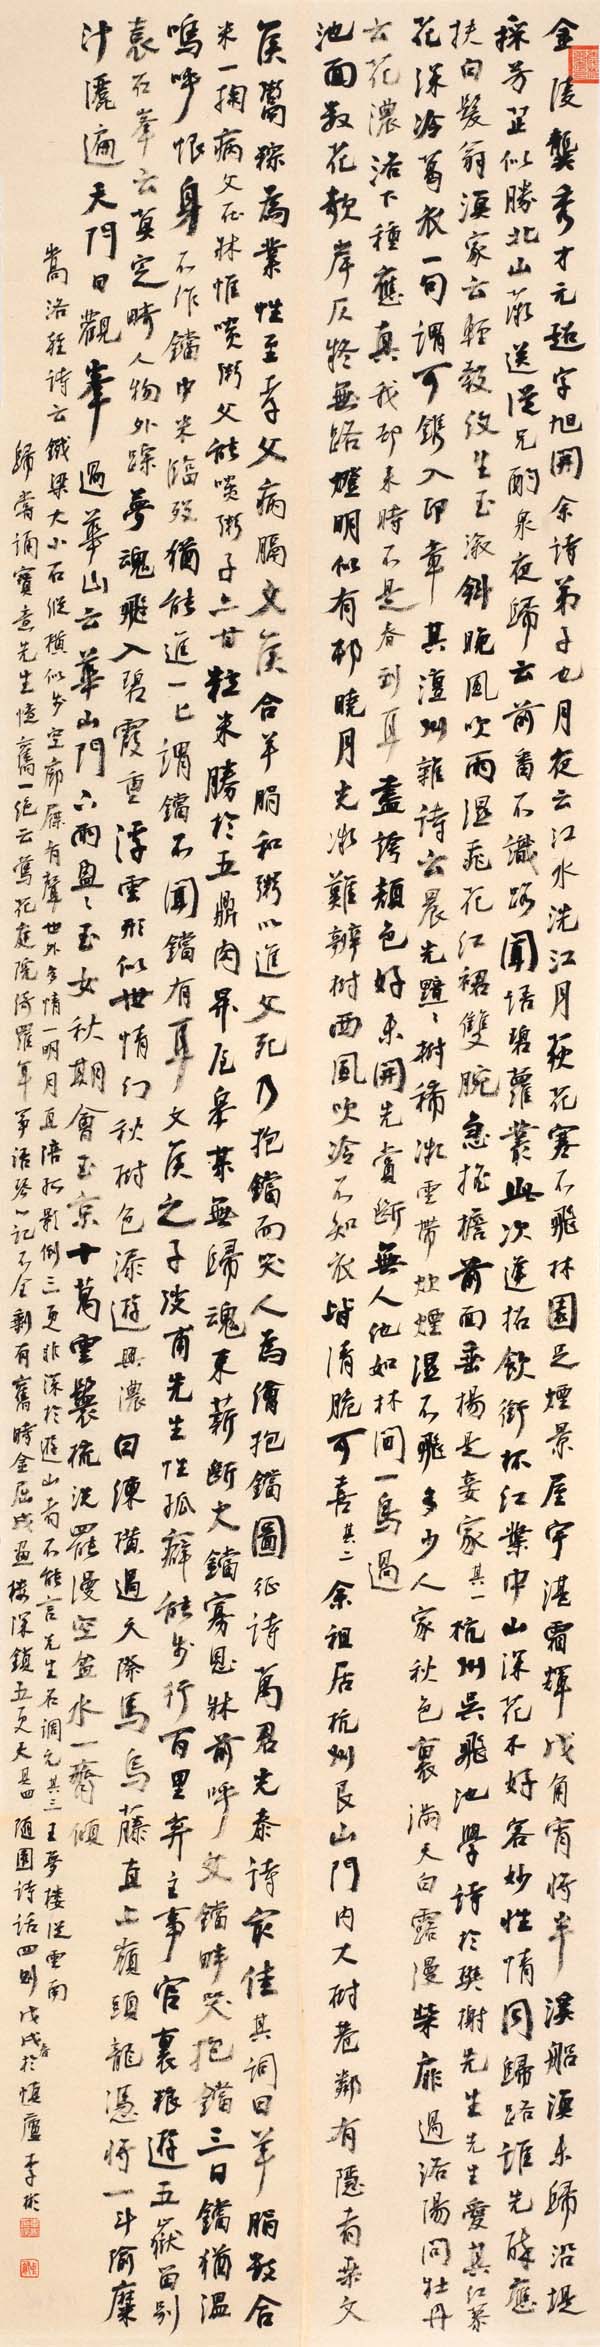 金陵龔秀才元超字旭開余詩弟子也月夜云江水洗江月荻花寒不飛林園足煙景屋宇湛霜輝戍角宵將半漢船漁未歸沿堤
採芳芷似勝北山薇送從兄酌泉夜歸云前番不識路聞語碧蘿叢此次進拓飲銜杯紅葉中山深花不好客妙性情同歸路誰先醉應
扶白髮翁漁家云輕縠紋生玉漵斜晚風吹雨濕飛花紅裙雙腕急搖櫓前面垂楊是妾家其一杭州吳飛池學詩於樊榭先生先生愛其紅蓼
花深冷葛衣一句謂可鐫入印章其澶州雜詩云晨光蹤々樹稀微雲帶炊煙濕不飛多少人家秋色裏滿天白露漫柴扉過洛陽問牡丹
云花濃洛下種應真我卻來時不是春到耳盡誇顏色好未開先賞斷無人他如林間一鳥過
池面數花欹岸仄將無路燈明似有村曉月光微難辨樹西風吹冷不知衣皆清脆可喜其二余祖居杭州艮山門內大樹巷鄰有隱者桑文
侯鬻粽為業性至孝父病膈文侯合羊脂和粥以進父死乃抱鐺而哭人為繪抱鐺圖征詩萬君光泰詩最佳其詞曰羊脂數合
米一掬病父在牀惟啖粥父能啖粥子亦甘粒米勝於五鼎肉昇屋皋某無歸魂束薪斷火鐺寡恩牀前呼父鐺畔哭抱鐺三日鐺猶溫
嗚呼恨身不作鐺中米臨歿猶能進一匕謂鐺不聞鐺有耳文侯之子弢甫先生性孤癖能步行百里棄主事官裹糧遊五嶽留別
袁石峯云莫定疇人物外蹤夢魂飛入碧霞重浮雲形似世情幻秋樹色添遊興濃白練橫過天際馬烏藤直上嶺頭龍憑將一斗隃糜
汁灑遍天門日觀峯過華山云華山門下雨盈々玉女秋期會玉京十萬雲鬟梳洗罷漫空盆水一齊傾
嵩洛雜詩云鐵梁大小石縱橫似步空廊屧有聲世外多情一明月直陪孤影倒三更非深於遊山者不能言先生名調元其三王夢樓從雲南
歸嘗誦寶意先生憶舊一絕云鶯花庭院綺羅年事語琴心記不全剩有舊時金屈戍畫樓深鎖五更天其四隨園詩話四則戊戌春於慎廬李彬